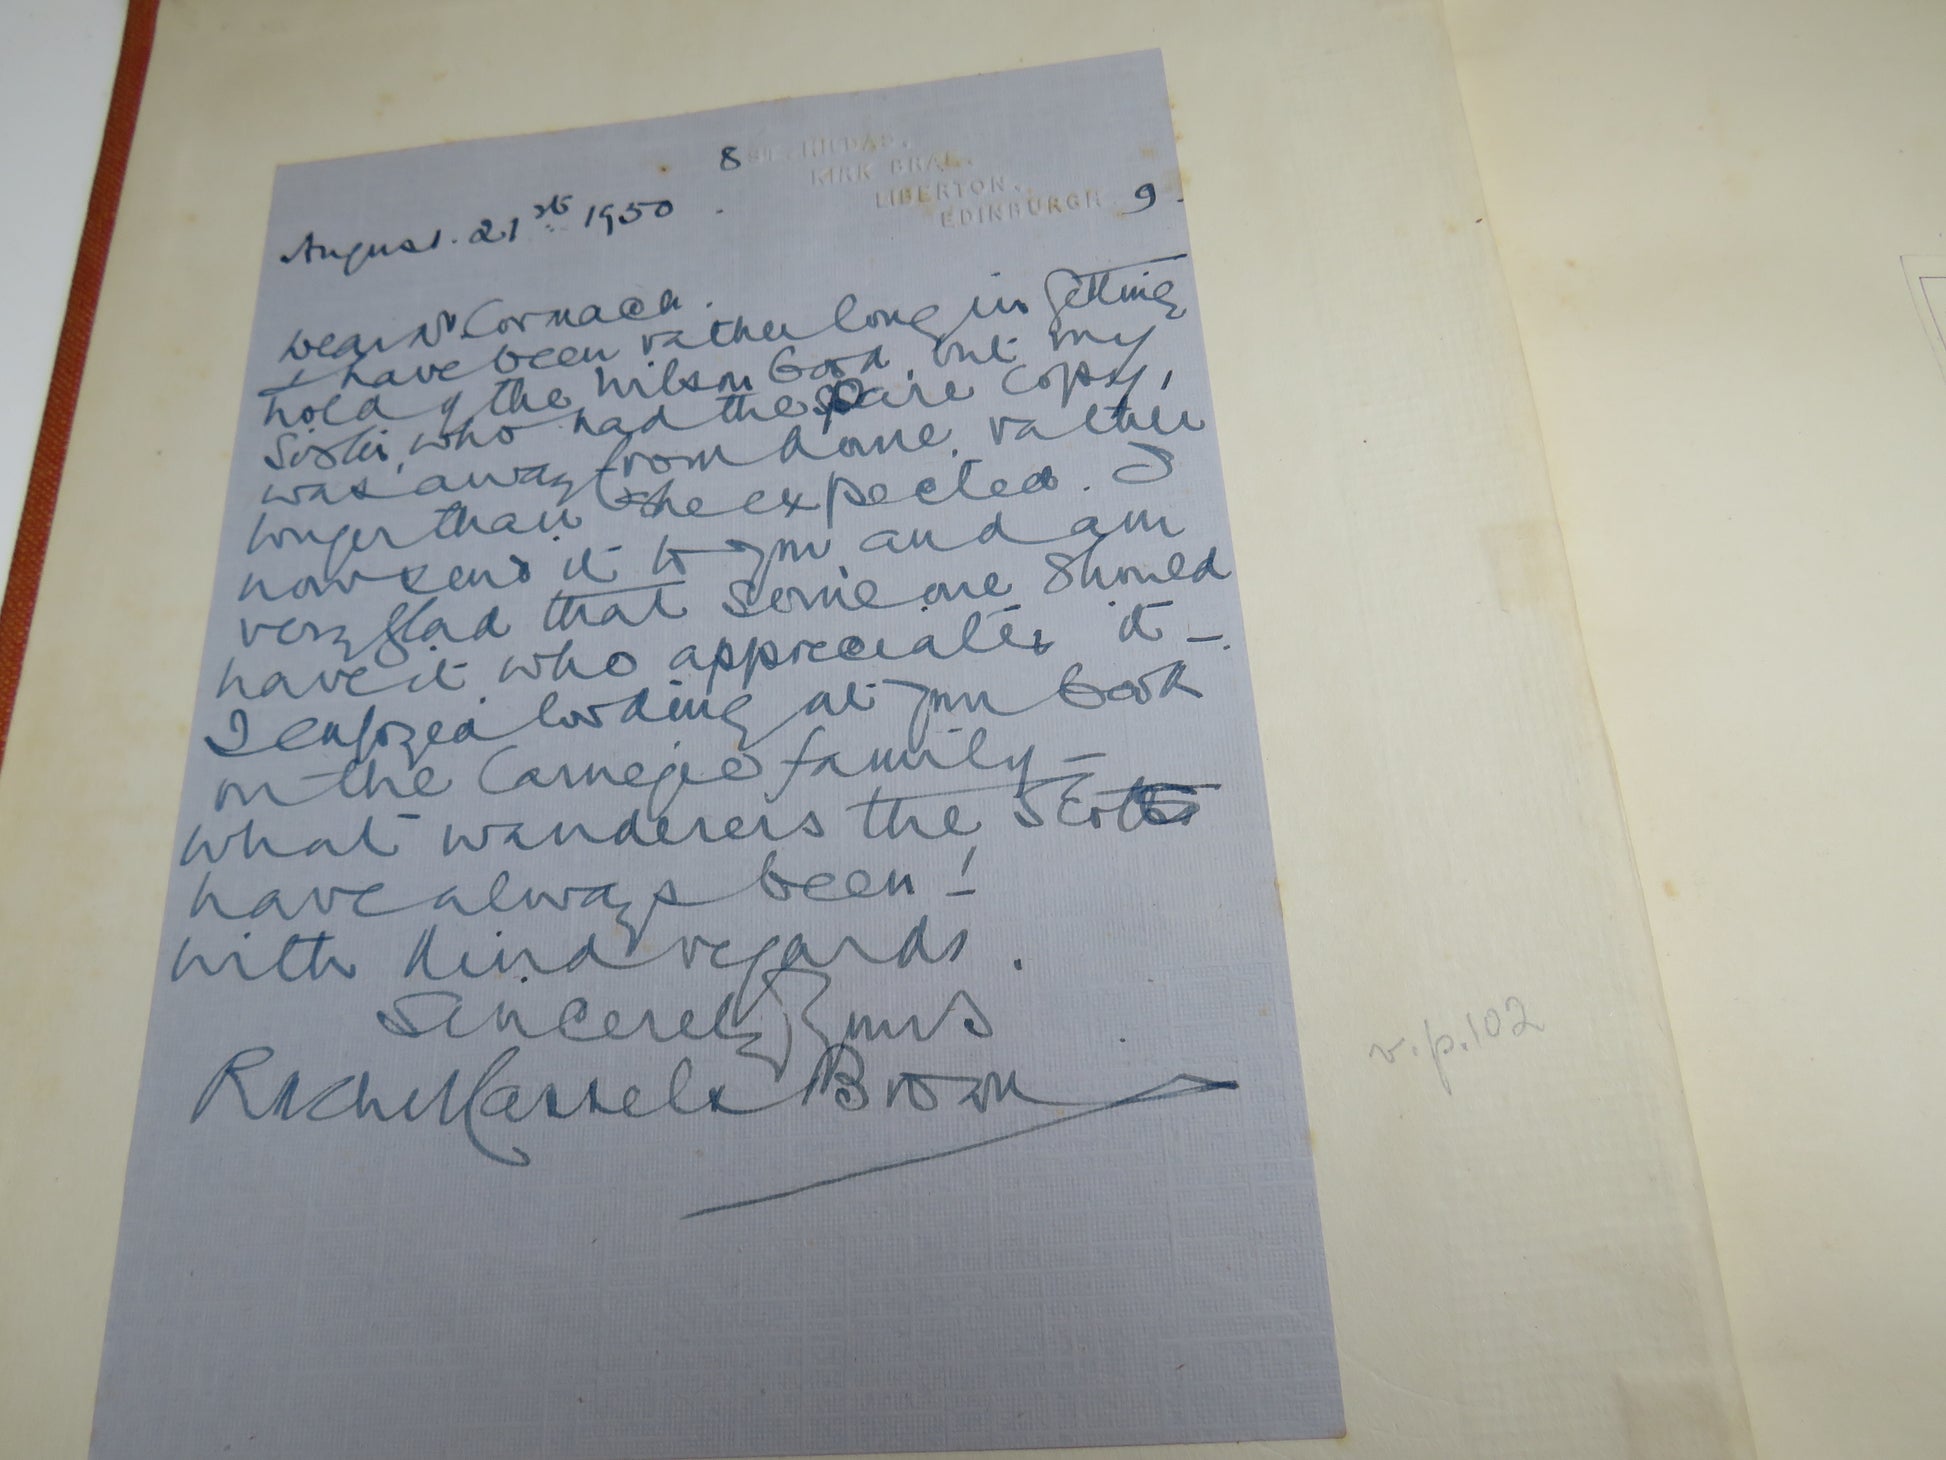 8 ST. HILDAS.
KIRK BRAE.
LIBERTON.
EDINBURGH 9.
August. 21st 1950.
Dear Mr Cormack.
I have been rather long in getting
hold of the Wilson book but my
sister, who had the spare copy,
was away from home, rather
longer than she expected. I
now send it to you and am
very glad that some one should
have it who appreciates it –.
I enjoyed looking at your book
on the Carnegie family –
what wanderers the Scots
have always been!
With kind regards.
Sincerely Yours
Rachel Cassels Brown
v.p.102